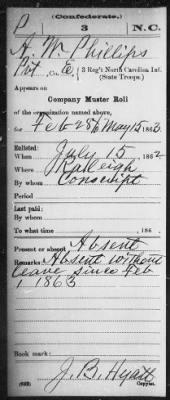 P
(Confederate.)
3 N.C.
A. W. Phillips
Pvt, Co. E, 3 Reg't North Carolina Inf.
(State Troops.)
Appears on
Company Muster Roll
of the organization named above,
for Feb 28 to May 15, 1863.
Enlisted:
When July 15, 1862
Where Raleigh
By whom Conscript
Period
Last paid:
By whom
To what time , 186 .
Present or absent Absent
Remarks: Absent without
leave since Feb
1 1863
Book mark:
J. B. Hyatt
Copyist.